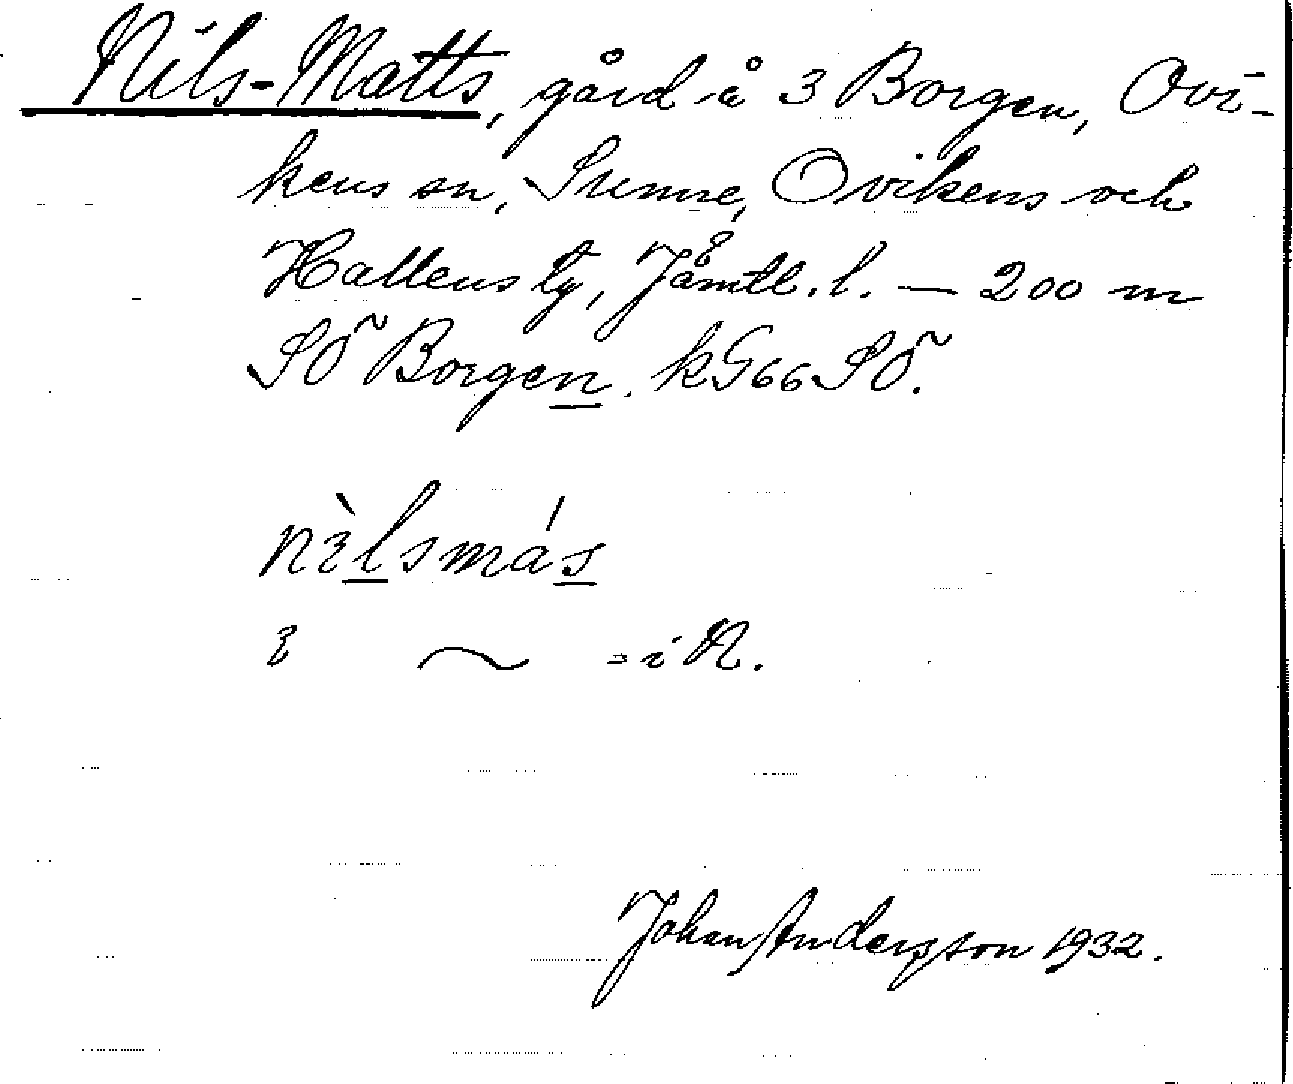 Nils-Matts, gård å 3 Borgen, Ovi-
kens sn, Sunne, Ovikens och
Hallens tg, Jämtl. l. — 200 m
SÖ Borgen. kG66SÖ.
nìlsmás
ɩ ~ = i N.
Johan Andersson 1932.